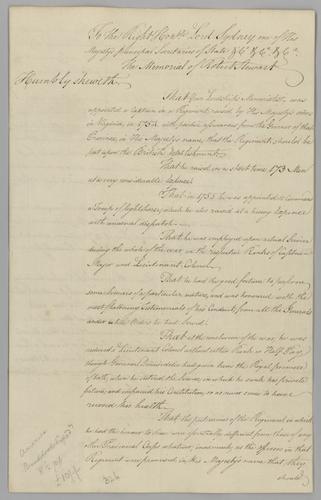 To the Right Honble Lord Sydney one of His
Majesty's principal Secretaries of State &c. &c. &c.
The Memorial of Robert Stewart
Humbly Sheweth,
That Your Lordships Memorialist, was
appointed a Captain in a Regiment raised by His Majesty's orders
in Virginia, in 1754, with positive assurances from the Governor of that
Province, in His Majesty's name, that the Regiment should be
put upon the British establishment.
That he raised in a short time 173 Men
at a very considerable expence.
That in 1755 he was appointed to command
a Troop of light horse, which he also raised at a heavy expence
with unusual dispatch.
That he was employed upon actual Service
during the whole of the war, in the respective Ranks of Captain
Major and Lieutenant Colonel.
That he had the good fortune to perform
some Services of a particular nature, and was honored with the
most flattering Testimonials of his Conduct, from all the Generals
under whose Orders he had served.
That at the conclusion of the war, he was
reduced a Lieutenant Colonel without either Rank or Half Pay,
though General had given him the Royal promise
of both, when he entered the Service, in which he sunk his private
fortune, and impaired his Constitution, so as never since to have
recovered his health.
That the pretensions of the Regiment in which
he had the honor to serve were essentially different from those of any
other Provincial Corps whatever, inasmuch as the officers in that
Regiment were promised in His Majesty's name that they
should